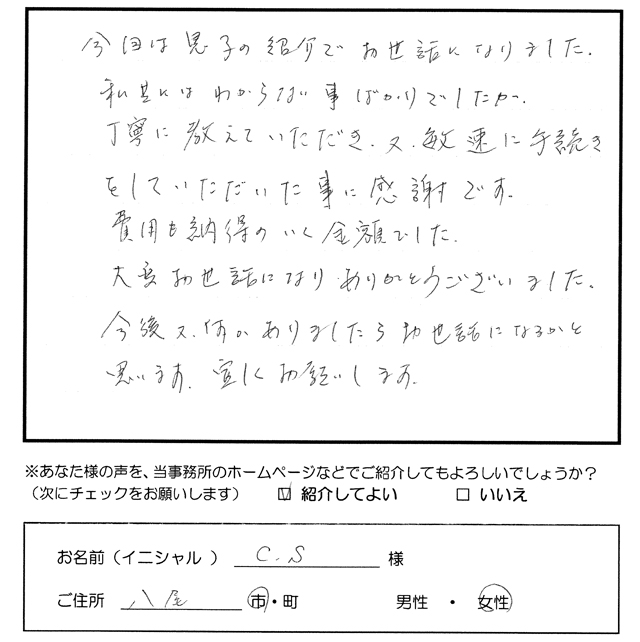 今回は息子の紹介でお世話になりました.
私共にはわからない事ばかりでしたが.
丁寧に教えていただき.又.敏速に手続き
をしていただいた事に感謝です.
費用も納得のいく金額でした.
大変お世話になりありがとうございました.
今後又.何かありましたらお世話になるかと
思います.宜しくお願いします.
※あなた様の声を、当事務所のホームページなどでご紹介してもよろしいでしょうか？
（次にチェックをお願いします） ☑ 紹介してよい □ いいえ
お名前（イニシャル ） C.S 様
ご住所 八尾 市・町 男性 ・ 女性